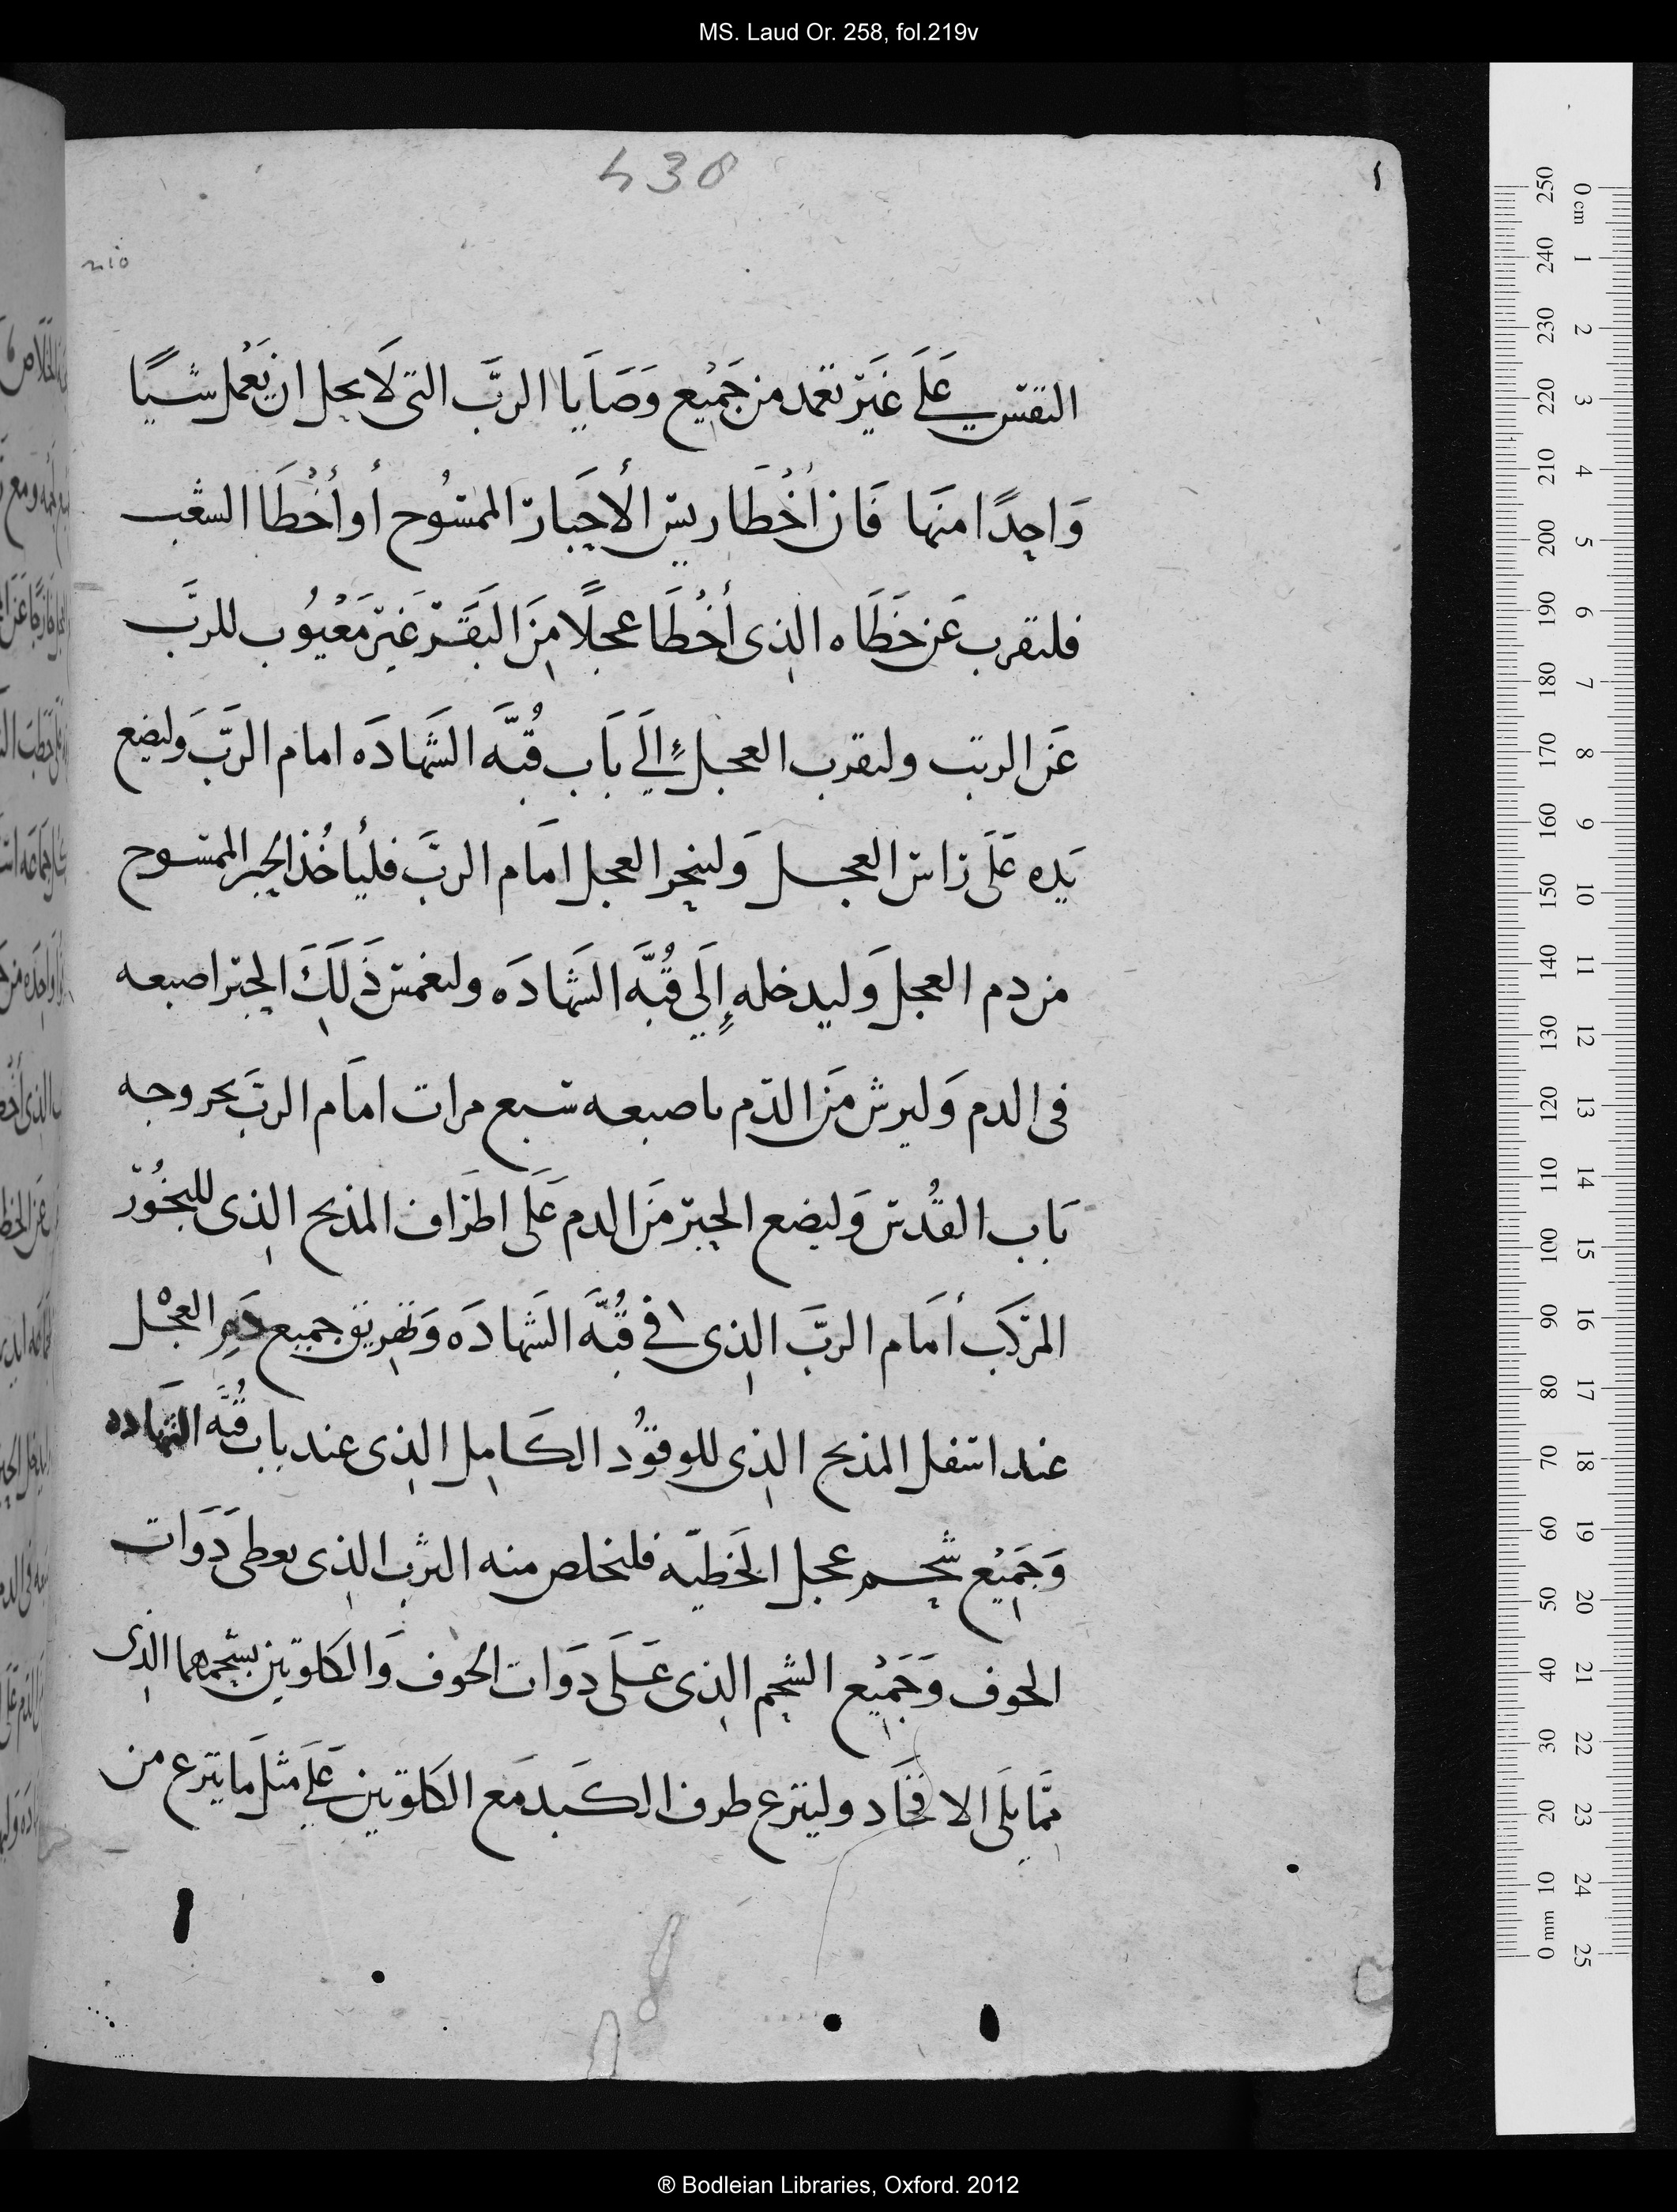 MS. Laud Or. 258, fol.219v
438
النفس على غير تعمد من جميع وَصَايا الربَّ التى لَا يحل ان يَعْمل شيًا
وَاحِدًا منهَا فَان أخْطَا ريس الأحبَار الممسُوح أو أخْطَا الشعب
فليقرب عَن خَطَاه الذى أخْطَا عجلًا مِنَ البَقَر غَير مَعْيُوب للرَّب
عَن الريب وليقرب العجل إلَى بَاب قُبَّه الشَهادَه امام الربَّ وَليضع
يَده عَلَى رَاس العجل وَلينحر العجل امَام الربَّ فليُاخُذ الحبر الممسوح
من دم العجل وَليدخله إلَى قُبَّه الشَهادَه وليغمس ذَلكَ الحبر اصبعه
فى الدم وَليرش مَن الدَم باصبعه سبع مرات امَام الربَّ بحر وجه
بَاب القُدس وَليضع الحبر مَن الدم عَلَى اطرَاف المذبح الذى للبخُور
المركَب أمَام الربَّ الذى فى قُبَّه الشَهادَه وَيَهريق جميع دَم العجْل
عند اسفل المذبح الذى للوقوُد الكَامل الذى عند باب قُبَّه الشهاده
وَجَميْع شحم عجل الخَطيّه فليخلص منه الثرب الذى يعطى دَوَات
الجوف وَجَميْع الشحم الذى عَلَى دَوَات الجُوف وَالكلوتين بشحمهما الذى
مَّما يلَى الافخَاد ولينزع طرف الكَبد مَع الكلوتين عَلَى مثلَ ما ينزع من
0 cm 1 2 3 4 5 6 7 8 9 10 11 12 13 14 15 16 17 18 19 20 21 22 23 24 25
250 240 230 220 210 200 190 180 170 160 150 140 130 120 110 100 90 80 70 60 50 40 30 20 10 0 mm
® Bodleian Libraries, Oxford. 2012